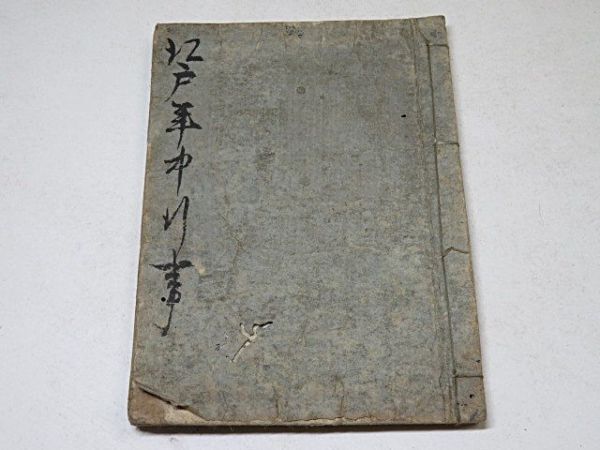 江戸年中行事